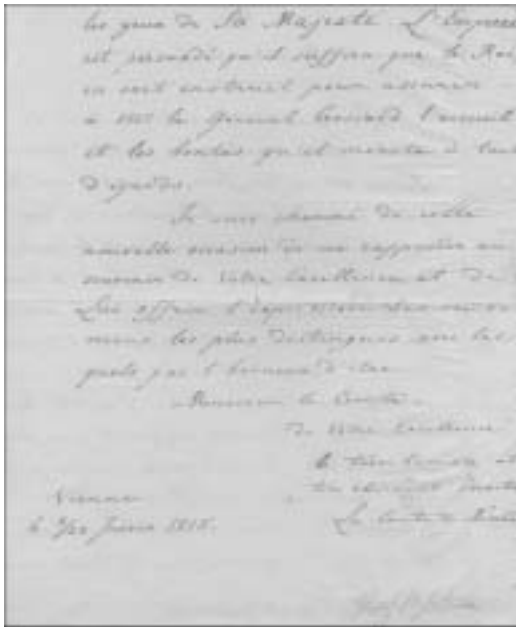 les yeux de Sa Majesté. L'Empereur
est persuadé qu'il suffira que le Roi
en soit instruit pour assurer
à Mr le Général l'accueil
et les bontés qu'il mérite à tant
d'égards.
Je suis charmé de cette
nouvelle occasion de me rappeller au
souvenir de Votre Excellence et de
Lui offrir l'expression des
mens les plus distingués avec les
quels j'ai l'honneur d'être
Monsieur le Comte
de Votre Excellence
le très humble et
très obéissant
Vienne
le Janvier 1815.
Le Comte de